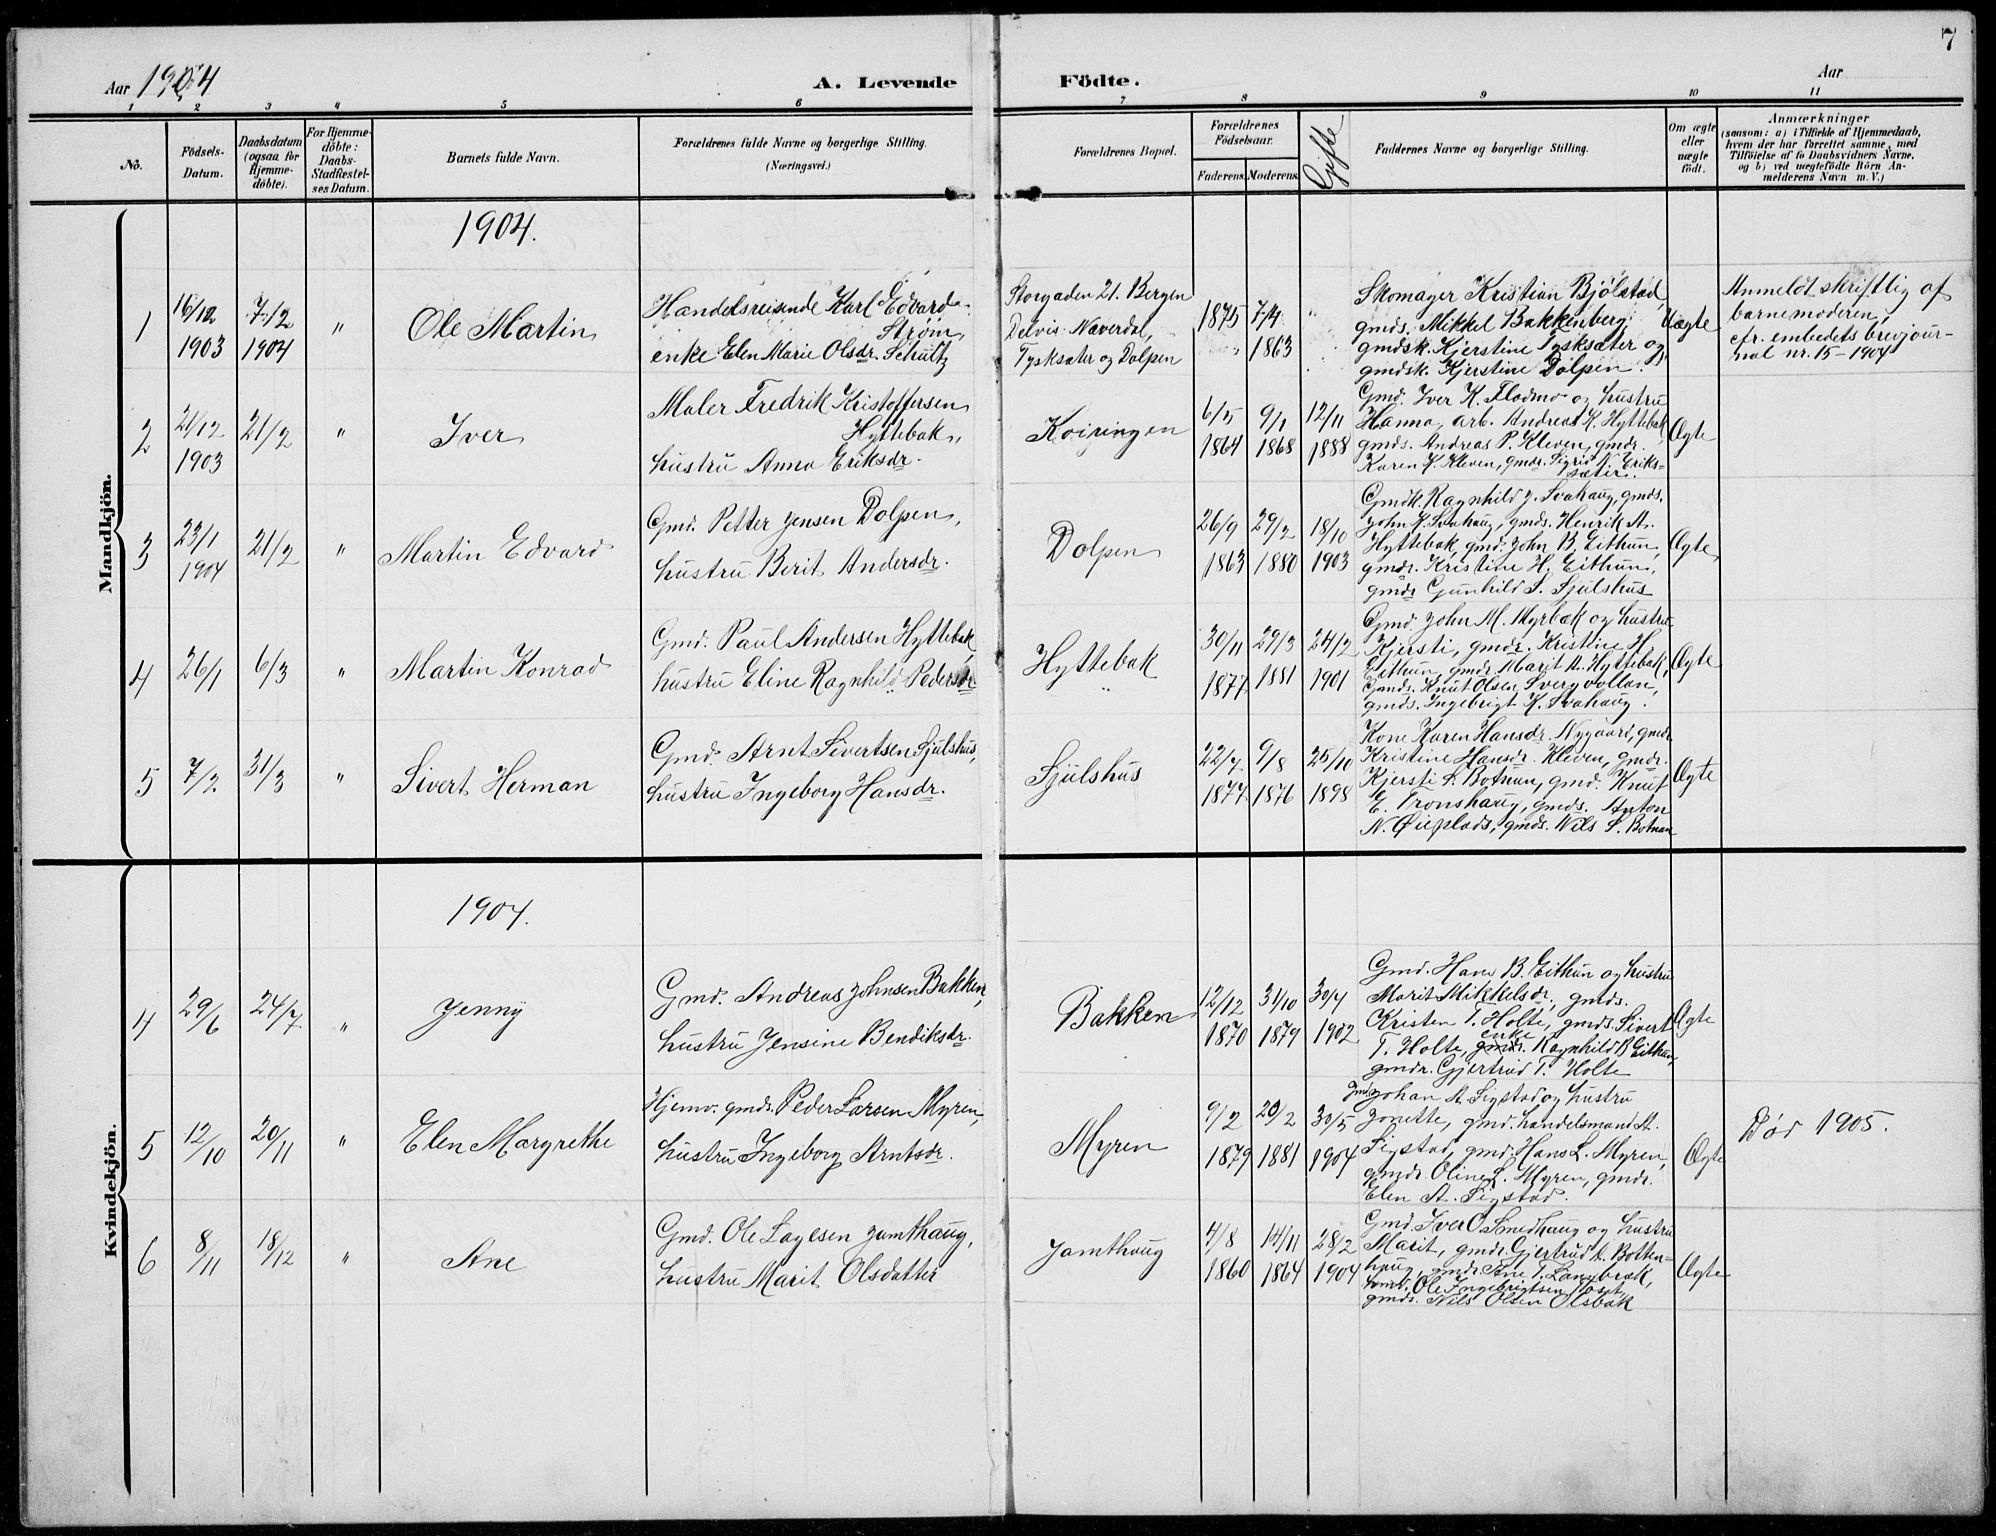 7
Aar 1904
A. Levende Födte.
Aar
1 2 3 " 5 6 7 8 9 10 11
Nô.
Födsels-
Datum.
Daabsdatum
(ogsaa for
Hjemme-
döbte).
For Hjemme-
döbte:
Daabs-
Stadfæstel-
ses Datum.
Barnets fulde Navn.
Forældrenes fulde Navne og borgerlige Stilling.
(Næringsvei.)
Forældrenes Bopæl.
Forældrenes
Födselsaar.
Faderens. Moderens.
Gifte
Faddernes Navne og borgerlige Stilling.
Om ægte
eller
uægte
födt.
Anmærkninger
(saasom: a) i Tilfælde af Hjemmedaab,
hvem der har forrettet samme, med
Tilföielse af to Daabsvidners Navne,
og b) ved uægtefödte Börn An-
melderens Navn m. V.)
Mandkjön.
1904.
1
16/12
1903
7/2
1904
"
Ole Martin
Handelsreisende Karl Edvard
Strøm,
enke Elen Marie Olsdr. Schultz
Storgaden 21. Bergen
Delvis Naverdal,
Tysksæter og Dolpen
1875
7/4
1863
Skomager Kristian Bjølstad,
gmds. Mikkel Bakkenberg,
gmdsk. Kjerstine Tysksæter og
gmdsk. Kjerstine Dolpen.
Uægte
Anmeldt skriftlig af
barnemoderen,
cfr. embedets brevjour-
nal nr. 15-1904
2
21/12
1903
21/2
"
Iver
Maler Fredrik Kristoffersen
Hyttebak,
hustru Anna Eriksdr.
Koiringen
6/5
1864
9/1
1868
12/11
1888
Gmd. Iver K. Flodmo og hustru
Hanna, arb. Andreas K. Hyttebak,
gmds. Andreas P. Kleven, gmdr.
Karen K. Kleven, gmdr. Sigrid N. Eriks-
sæter.
Ægte
3
23/1
1904
21/2
"
Martin Edvard
Gmd. Petter Jensen Dolpen,
hustru Berit Andersdr.
Dolpen
26/9
1863
29/2
1880
18/10
1903
Gmdk. Ragnhild J. Svahaug, gmds.
John K. Svahaug, gmds. Henrik A.
Hyttebak, gmd. John B. Eithun,
gmdr. Kristine H. Eithun,
gmdr Gunhild S. Sjulshus
Ægte
4
26/1
6/3
"
Martin Konrad
Gmd. Paul Andersen Hyttebak,
hustru Eline Ragnhild Pedersdr
Hyttebak
30/11
1877
29/3
1881
24/2
1901
Gmd. John M. Myrbak og hustru
Kjersti, gmdr. Kristine H.
Eithun, gmdr. Marit A. Hyttebak,
Gmds. Knut Olsen Svergvollan,
gmds. Ingebrigt K. Svahaug.
Ægte
5
7/2
31/3
"
Sivert Herman
Gmd. Arnt Sivertsen Sjulshus,
hustru Ingeborg Hansdr.
Sjulshus
22/7
1877
9/8
1876
25/10
1898
Kone Karen Hansdr. Nygaard, gmdr.
Kristine Hansdr. Kleven, gmdr.
Kjersti S. Botnan, gmd. Knut
E. Tronshaug, gmds. Anton
N. Øieplads, gmds. Nils S. Botnan
Ægte
Kvindekjön.
1904.
4
29/6
24/7
"
Jenny
Gmd. Andreas Johnsen Bakken,
hustru Jensine Bendiksdr.
Bakken
12/12
1870
31/10
1879
30/4
1902
Gmd. Hans B. Eithun og hustru
Marit Mikkelsdr, gmds.
Kristen T. Holte, gmds. Sivert
T. Holte, enke Ragnhild B. Eithun,
gmdr. Gjertrud T. Holte
Ægte
5
12/10
20/11
"
Elen Margrethe
Hjemv. gmds. Peder Larsen Myren,
hustru Ingeborg Arntsdr.
Myren
9/2
1879
20/2
1881
30/5
1904
Gmd. Johan A. Sigstad og hustru
Jonette, gmd. handelsmand A.
Sigstad, gmd. Hans L. Myren,
gmdr. Oline L. Myren, gmdr.
Elen A. Sigstad.
Ægte
Død 1905.
6
8/11
18/12
"
Ane
Gmd. Ole Lagesen Jamthaug,
hustru Marit Olsdatter
Jamthaug
4/8
1860
14/11
1864
28/2
1904
Gmd. Iver O. Smedhaug og hustru
Marit, gmdr. Gjertrud L. Botten-
haug, gmdr. Ane T. Langbrek,
Ole Ingebrigtsen
gmds. Nils Olsen Olsbak
Ægte